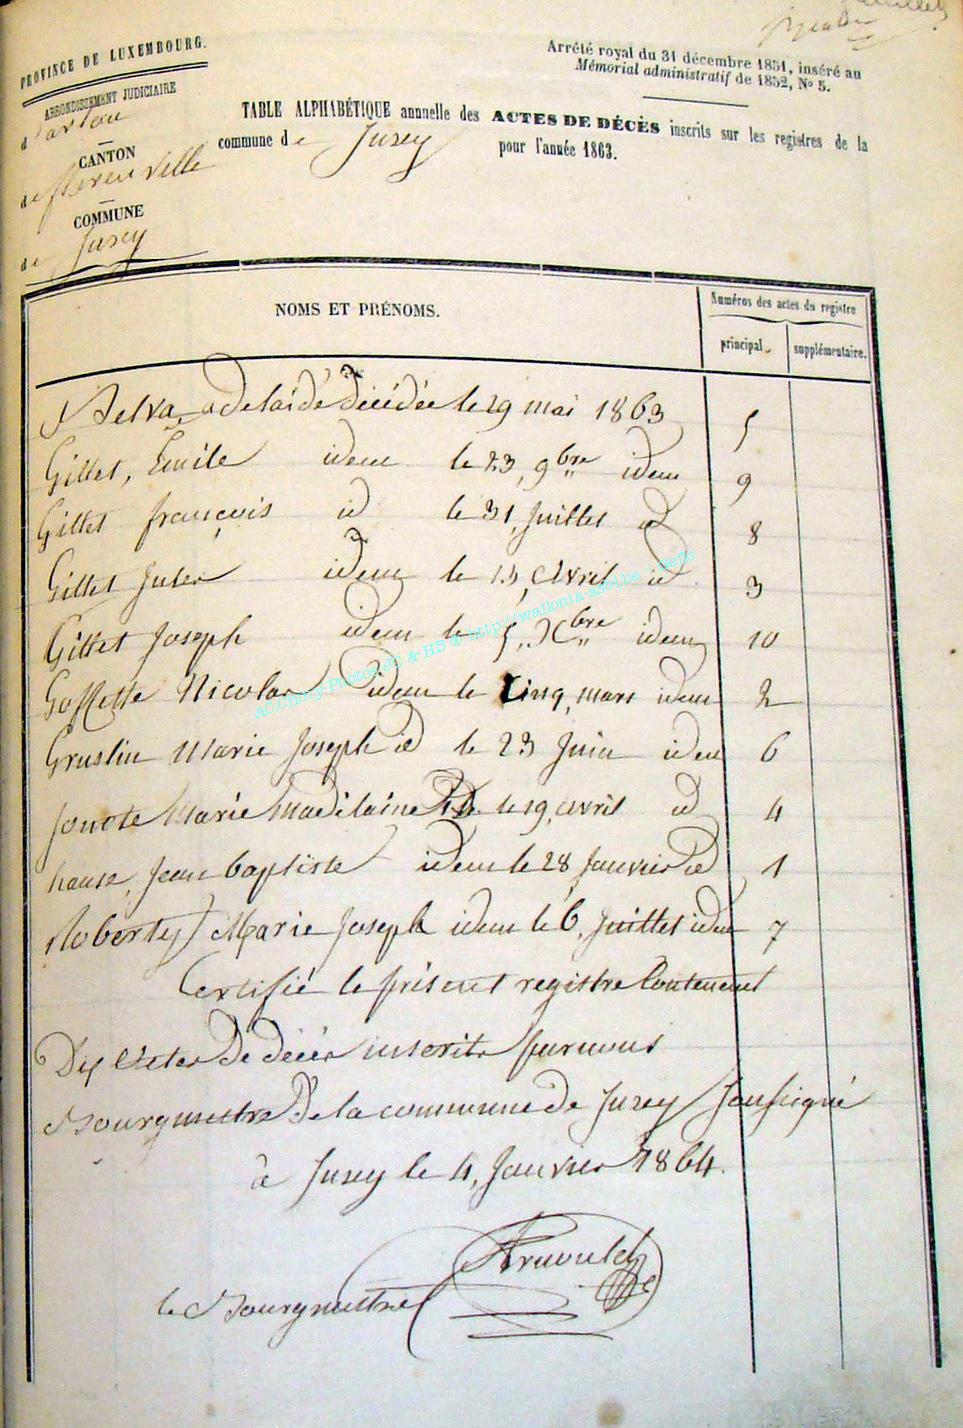 PROVINCE DE LUXEMBOURG.
ARRONDISSEMENT JUDICIAIRE
d'arlon
CANTON
de florenville
COMMUNE
de Jusey
Arrêté royal du 31 décembre 1851, inséré au
Mémorial administratif de 1852, No 5.
TABLE ALPHABÉTIQUE annuelle des ACTES DE DÉCÈS inscrits sur les registres de la
commune de Jusey pour l'année 1863.
NOMS ET PRÉNOMS.
Numéros des actes du registre
principal. supplémentaire.
adelaïde décédée le 29 mai 1863 5
Gillet, Emile idem le 23, 9bre idem 9
Gillet françois id le 31, Juillet id 8
Gillet Jules idem le 13, Avril id 3
Gillet Joseph idem le 5, Xbre idem 10
Goffette Nicolas idem le Cinq, mars idem 2
Gruslin Marie Joseph id le 23 Juin idem 6
Marie Madelaine id. le 19, avril id 4
Jean baptiste idem le 28, Janvier id 1
Roberty Marie Joseph idem le 6, Juillet idem 7
Certifié le présent registre Contenant
Dix Actes de décès inscrits par nous
Bourgmestre De la commune de Jusey Soussigné
à Jusey le 4, Janvier 1864.
le Bourgmestre
Arnould
AC.Chiny Photos JC & HB © http://wallonia-asbl.be